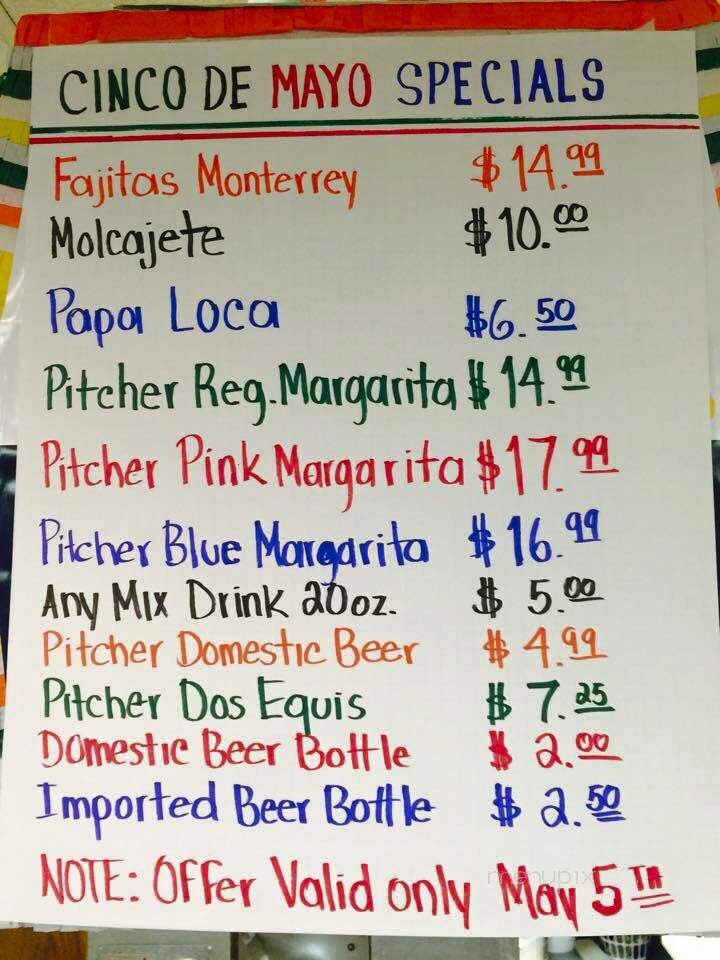 CINCO DE MAYO SPECIALS
Fajitas Monterrey $14.99
Molcajete $10.00
Papa Loca $6.50
Pitcher Reg. Margarita $14.99
Pitcher Pink Margarita $17.99
Pitcher Blue Margarita $16.99
Any Mix Drink 20oz. $5.00
Pitcher Domestic Beer $4.99
Pitcher Dos Equis $7.25
Domestic Beer Bottle $2.00
Imported Beer Bottle $2.50
NOTE: Offer Valid only May 5TH
menupix